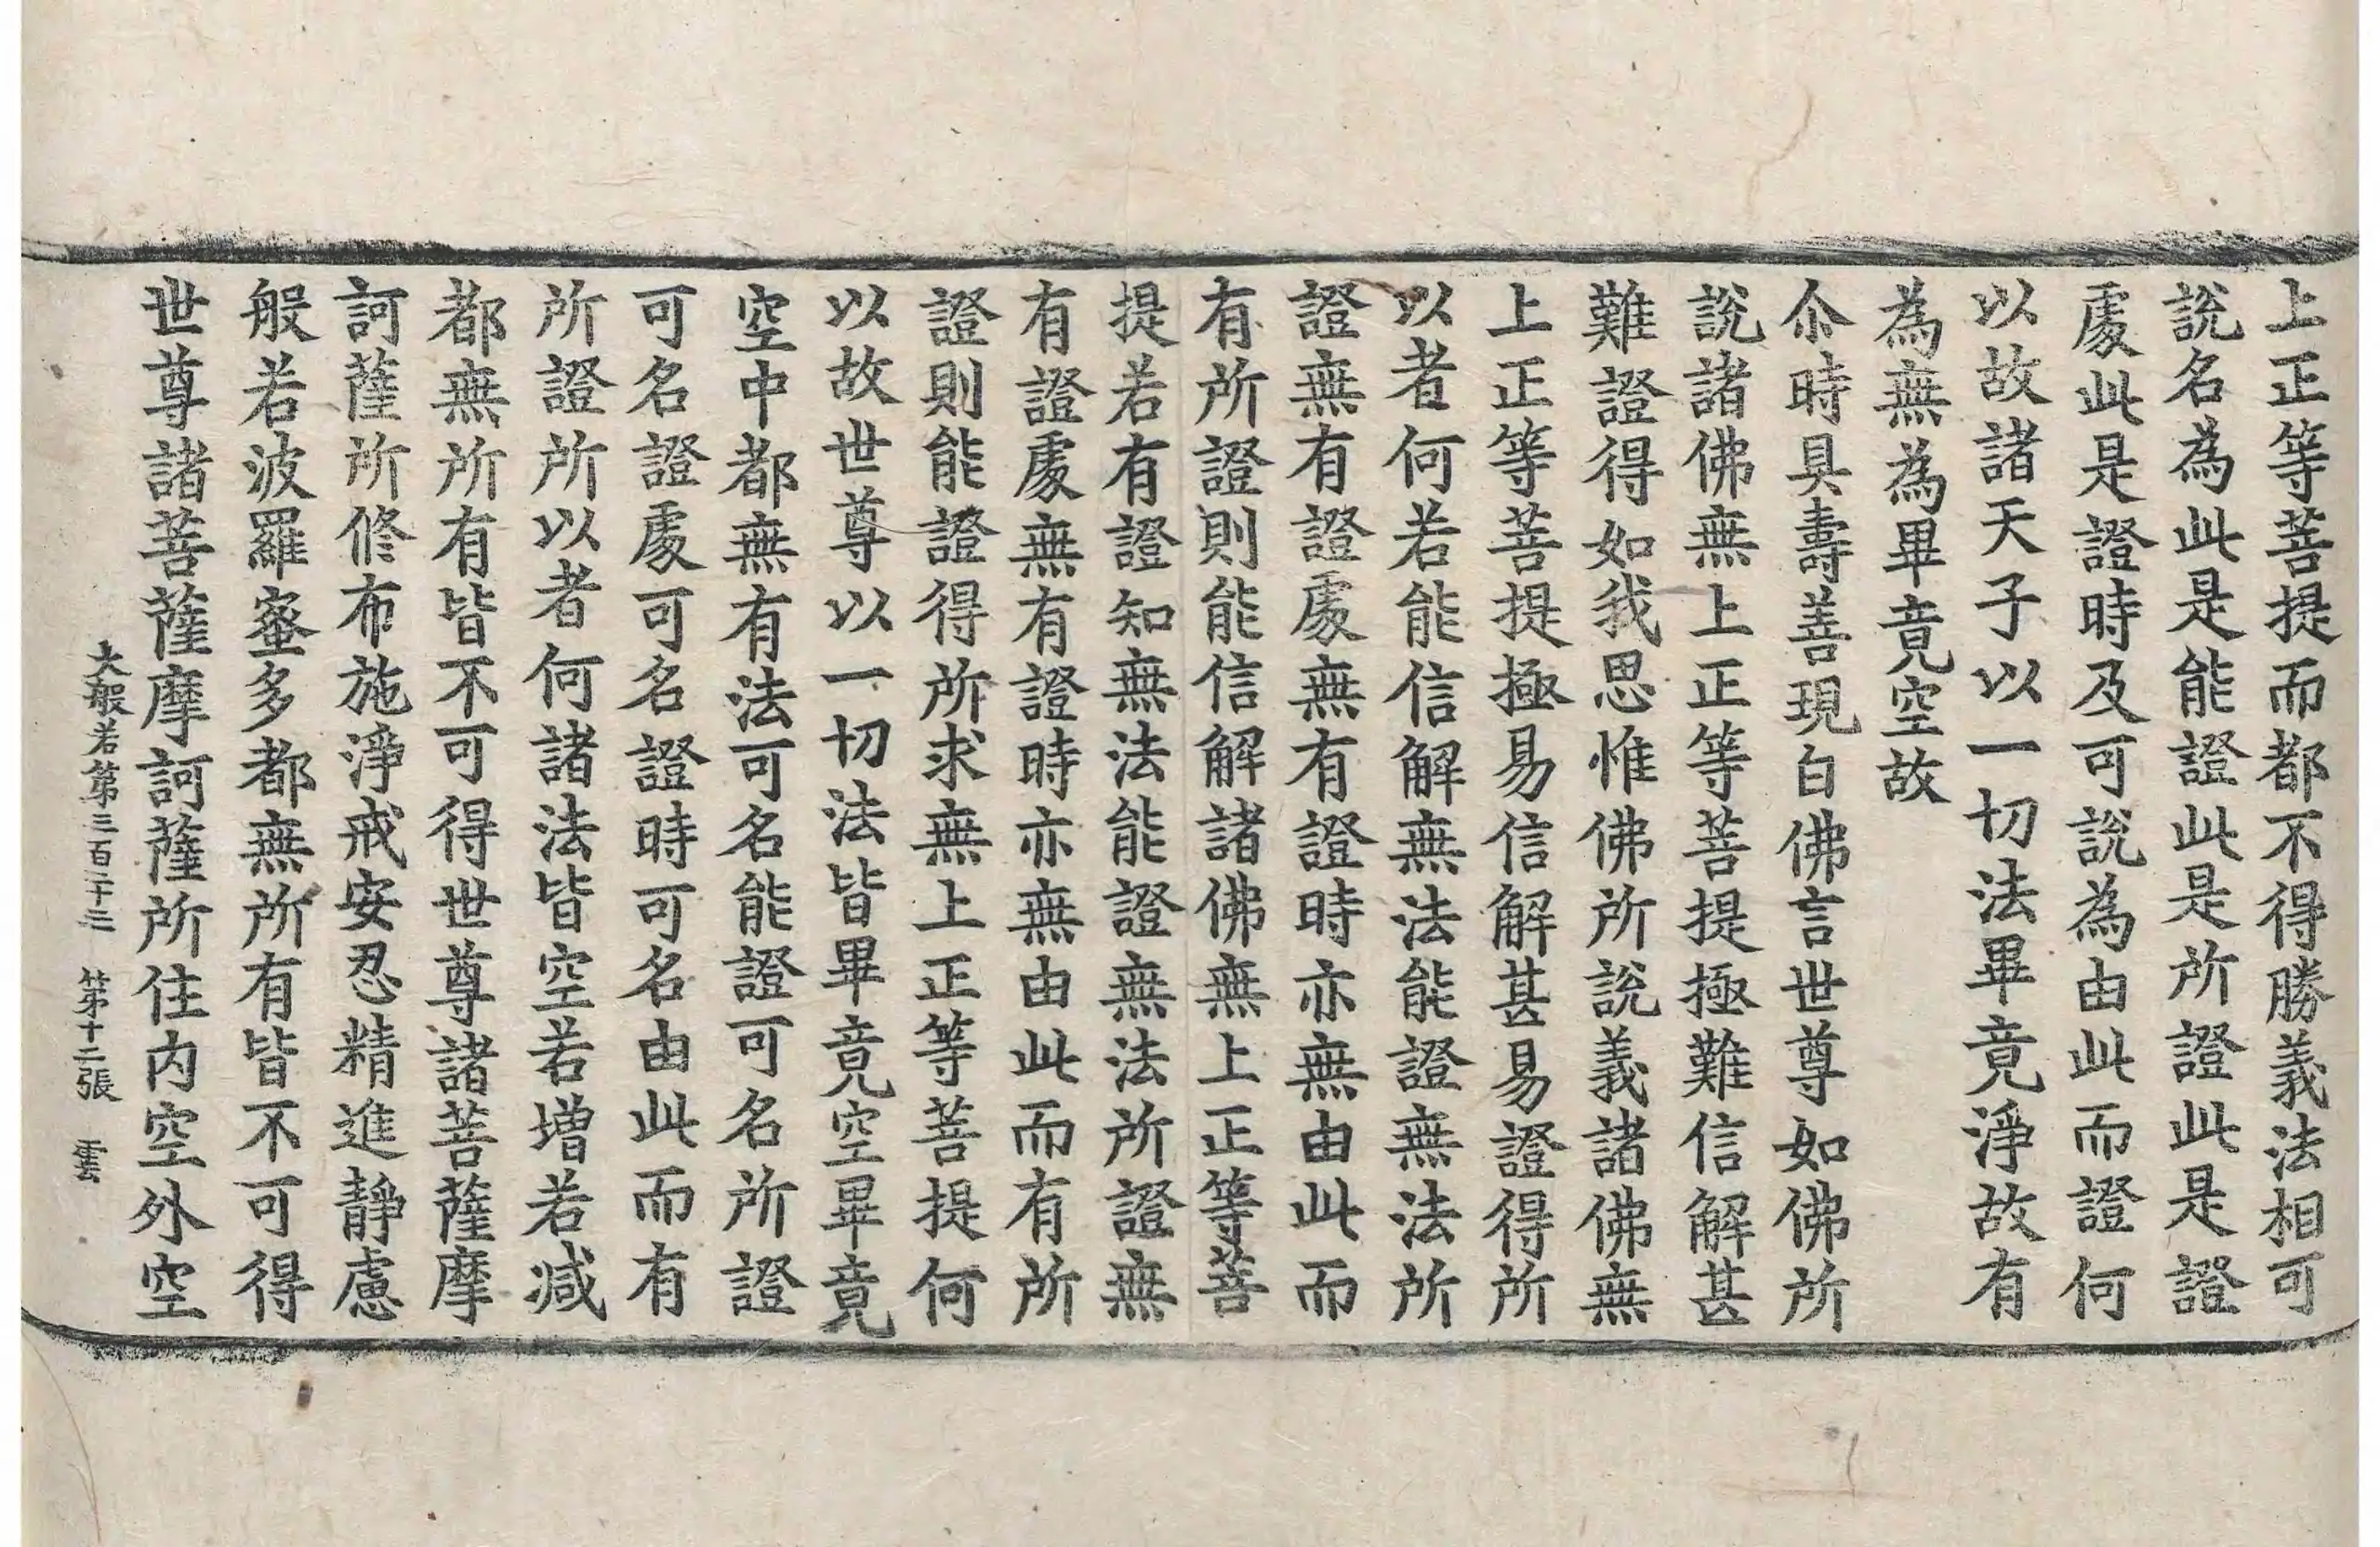 上正等菩提而都不得勝義法相可
說名為此是能證此是所證此是證
處此是證時及可說為由此而證何
以故諸天子以一切法畢竟淨故有
為無為畢竟空故
尒時具壽善現白佛言世尊如佛所
說諸佛無上正等菩提極難信解甚
難證得如我思惟佛所說義諸佛無
上正等菩提極易信解甚易證得所
以者何若能信解無法能證無法所
證無有證處無有證時亦無由此而
有所證則能信解諸佛無上正等菩
提若有證知無法能證無法所證無
有證處無有證時亦無由此而有所
證則能證得所求無上正等菩提何
以故世尊以一切法皆畢竟空畢竟
空中都無有法可名能證可名所證
可名證處可名證時可名由此而有
所證所以者何諸法皆空若增若減
都無所有皆不可得世尊諸菩薩摩
訶薩所修布施淨戒安忍精進靜慮
般若波羅蜜多都無所有皆不可得
世尊諸菩薩摩訶薩所住內空外空
大般若第三百二十三 第十二張 雲